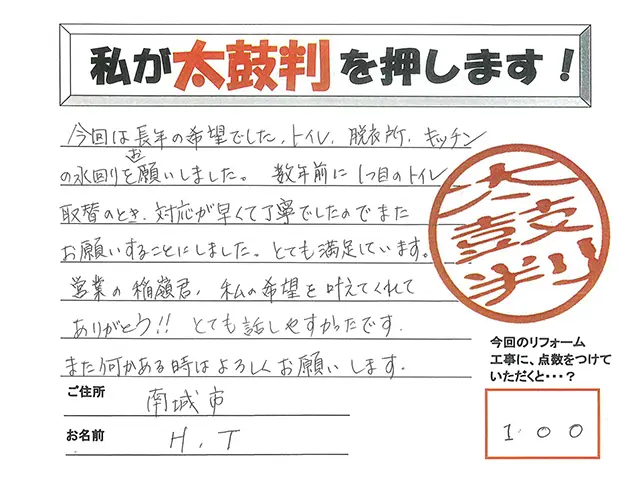 私が太鼓判を押します！
今回は長年の希望でした、トイレ、脱衣所、キッチン
の水回りをお願いしました。 数年前に1つ目のトイレ
取替のとき、対応が早くて丁寧でしたのでまた
お願いすることにしました。とても満足しています。
営業の稲嶺君、私の希望を叶えてくれて
ありがとう!! とても話しやすかったです.
また何かある時はよろしくお願いします.
太鼓判
ご住所 南城市
お名前 H.T
今回のリフォーム
工事に、点数をつけて
いただくと・・・？
100